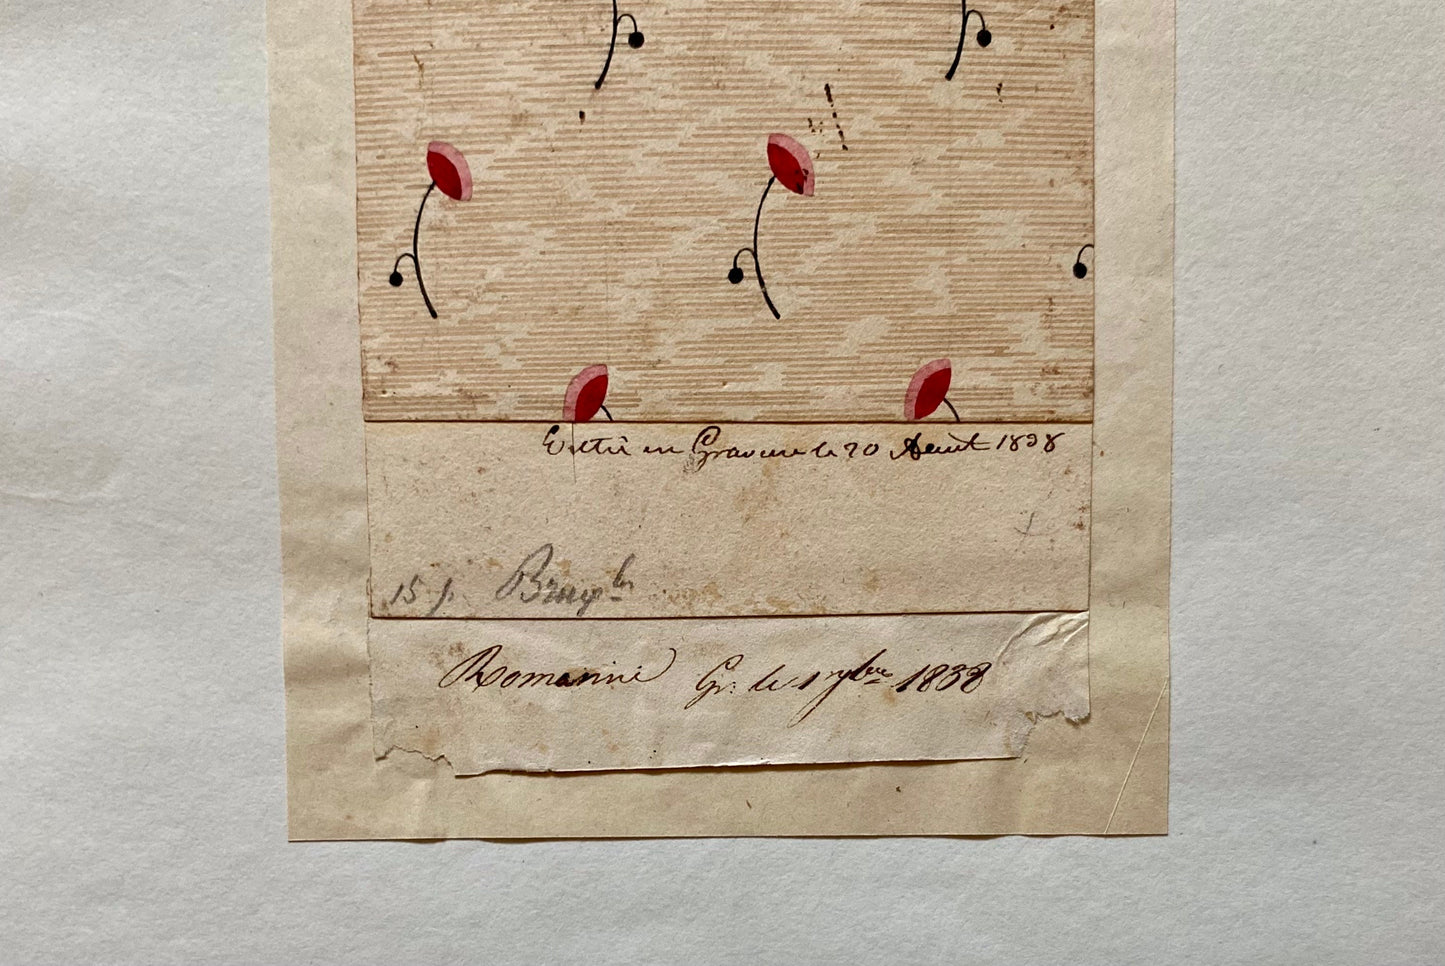 Entré en Gravure le 20 Aout 1838
15 f. Bruy
Romanine Gr: le 1 9bre 1838